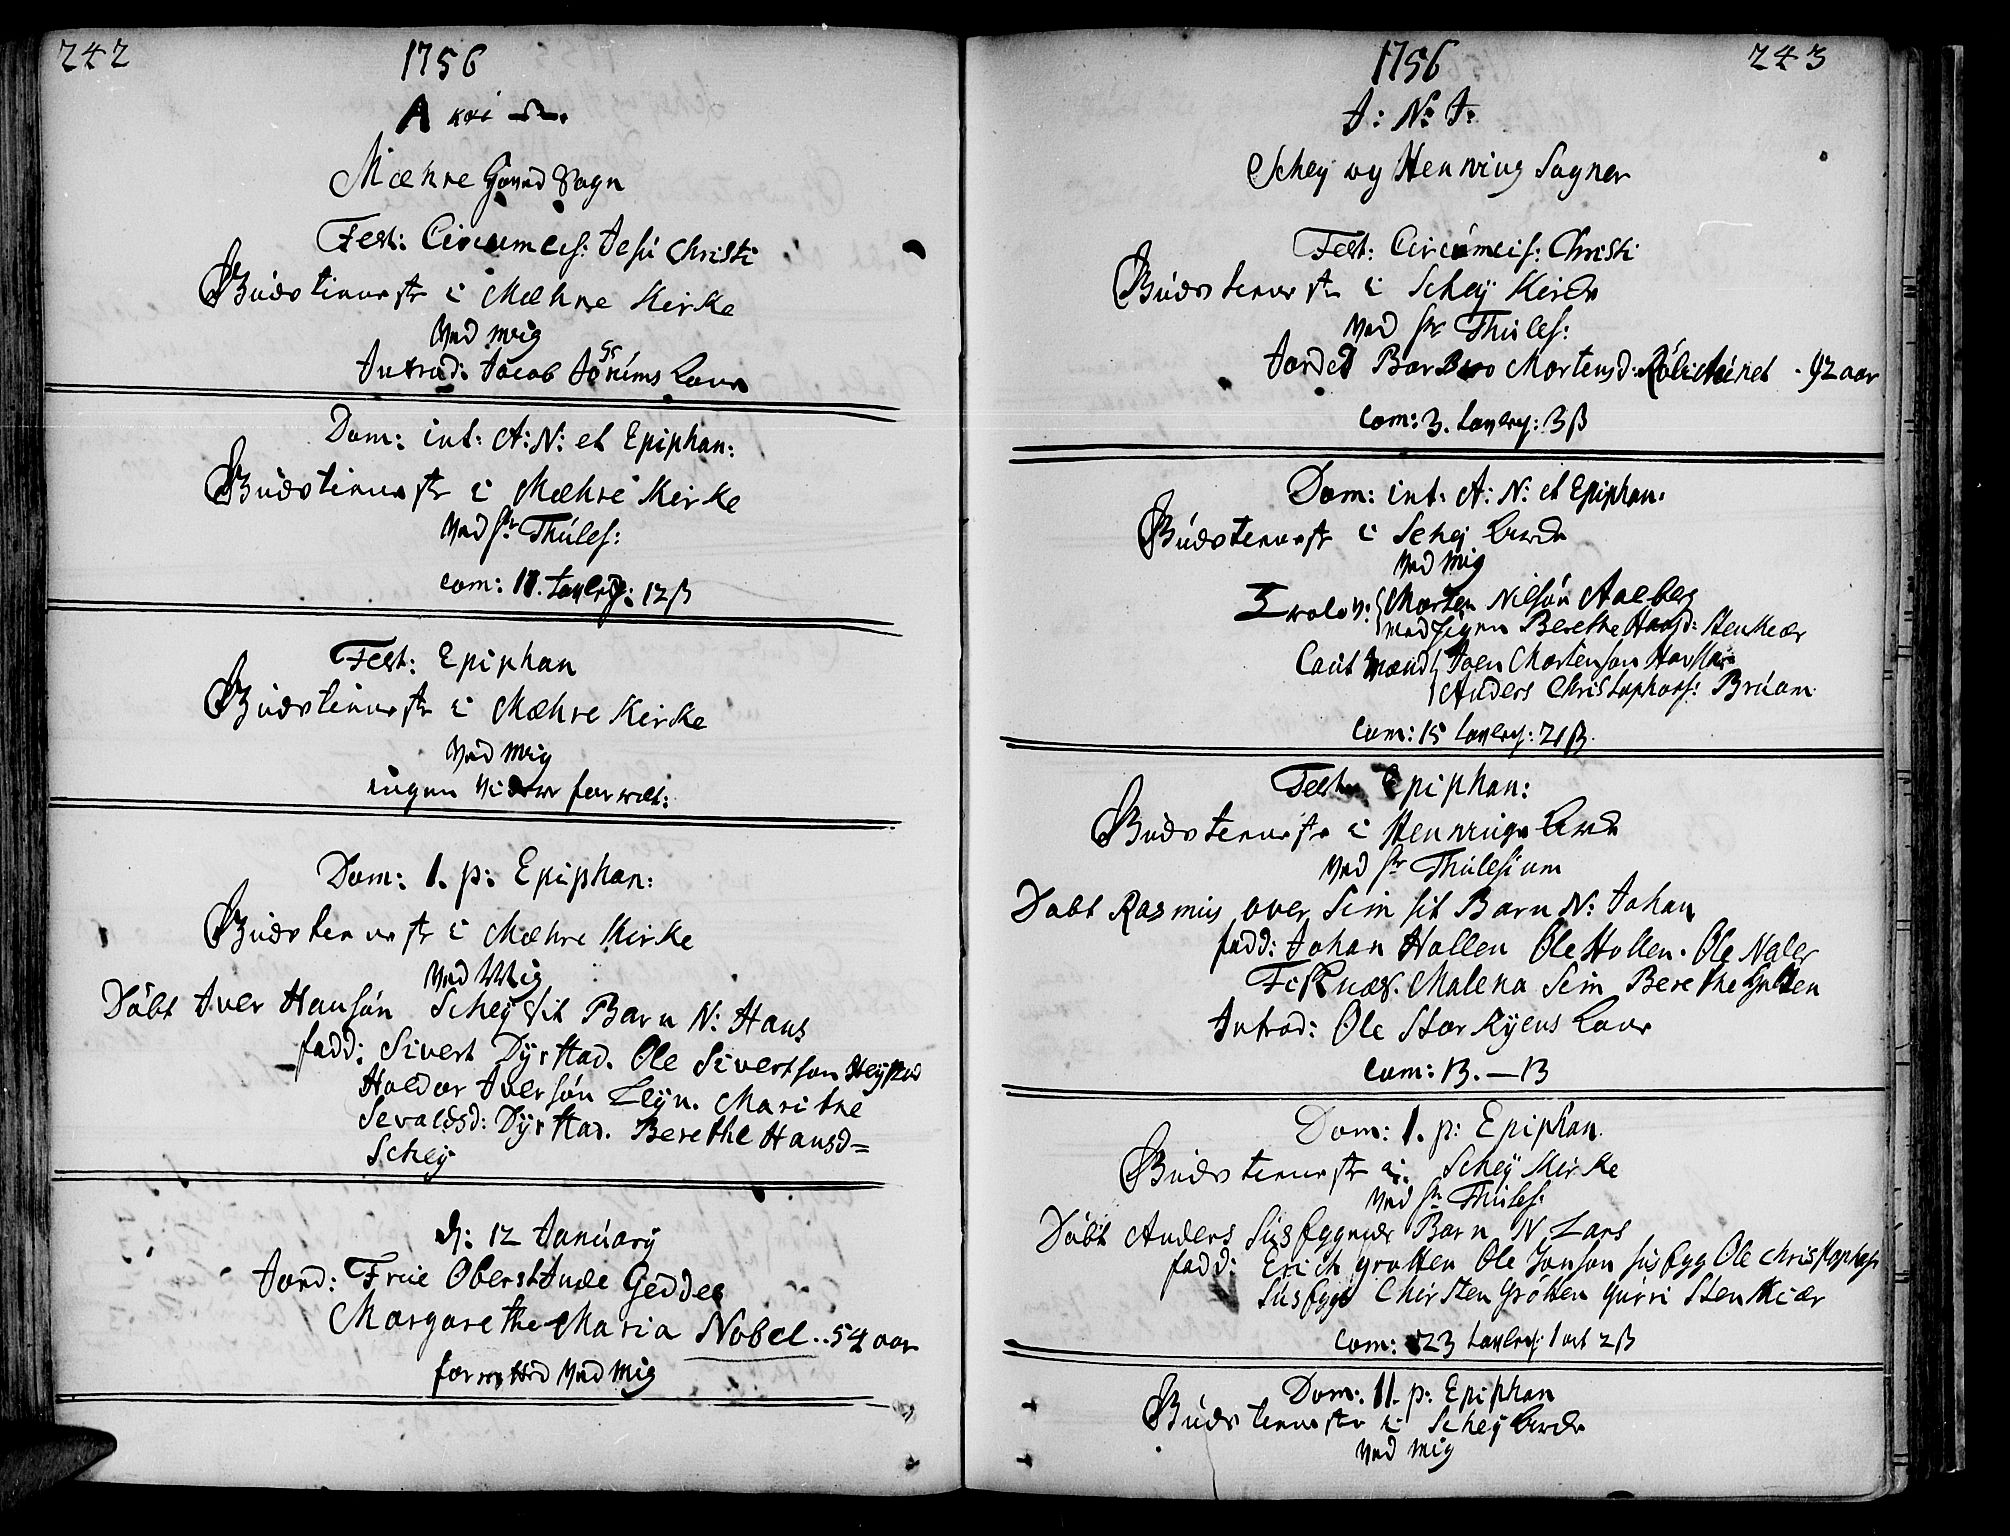 242
1756
A και Ω.
Mæhre Gaard Sogn
Fest: Circumcis: Jesu Christi
Gudstieneste i Mæhre Kirke
Ved mig
Introd: Jacob Lave
Dom: int: A: N: et Epiphan:
Gudstieneste i Mæhre Kirke
Ved Sr Thules:
com: 11. tavlep: 12 β
Fest: Epiphan
Gudstieneste i Mæhre Kirke
Ved mig
ingen videre forrett:
Dom: 1. p: Epiphan:
Gudstieneste i Mæhre Kirke
Ved Mig
Döbt Iver Hansøn Schey sit Barn N: Hans
fadd: Sivert Dyrstad. Ole Sivertson Heystad
Haldor Iversøn Leyn. Marithe
Sevaldsd: Dyrstad. Berethe Hansd=
Schey
d: 12 Januarÿ
Jord: Frue Oberstinde Geddes
Margarethe Maria Nobel .. 54 aar
forrettid Ved Mig
1756
243
J: N: J:
Schey og Henning Sogner
Fest: Circumcis: Christi
Gudstieneste i Schey Kirke
Ved Sr Thules:
Jordet Barbro Mortensd: - 92 aar
com: 3. tavlep: 3 β
Dom: int: A: N: et Epiphan:
Gudstieneste i Schej Kirke
Ved Mig
Trolov: Morten Nilsøn Aalberg
med Pigen Berethe Hansd: Stenkiær
Cautmænd Joen Mortenson
Anders Christophors: Bruem
Com: 15 tavlep: 21 β.
Fest: Epiphan:
Gudstieneste i Hennings Kirke
Ved Sr Thulesium
Dobt Rasmus over Sem sit Barn N: Johan
fadd: Johan Hallen Ole Hollen. Ole Naler
Malena Sem Berethe
Introd: Ole Lave
Com: 13. — 13
Dom: 1. p: Epiphan.
Gudstieneste i. Schey Kirke
Ved Sr Thules:
Dobt Anders Susfygner Barn N Lars
fadd: Erich grotten Ole Jonson susfyg Ole Christophs:
Susfyg Chirsten Grötten Gurri Stenkiær
Com: 23 tavlep: 1 ort 2 β
Dom: 11. p: Epiphan
Gudstieneste i Schey Kirke
Ved Mig